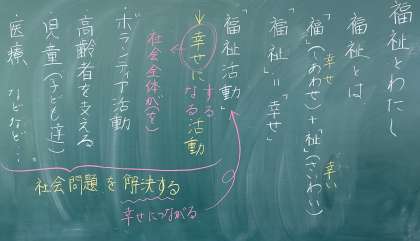 福祉とわたし
福祉とは
幸せ 幸い
「福」(しあわせ)+「祉」(さいわい)
「福祉」=「幸せ」
「福祉活動」
する
幸せになる活動
社会全体が(を)
ボランティア活動
高齢者を支える
児童(子ども達)
医療 などなど…。
社会問題を解決する
幸せにつながる